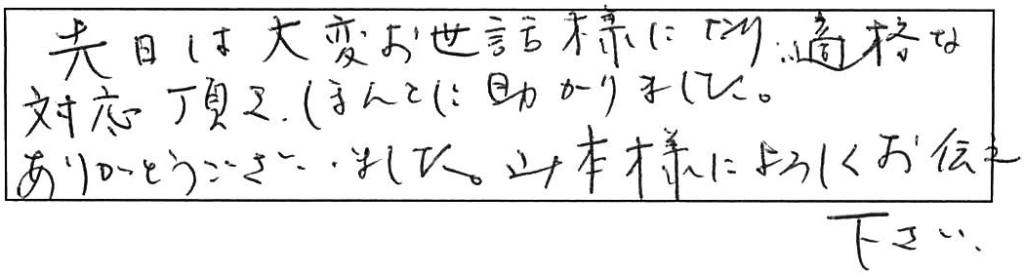 先日は大変お世話様になり、適格な
対応頂き、ほんとに助かりました。
ありがとうございました。山本様によろしくお伝え
下さい。